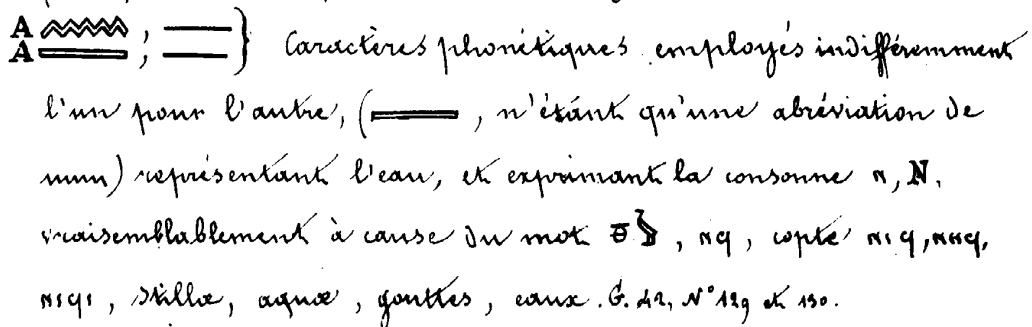 A 𓈖 ; — } Caractères phonétiques employés indifféremment
A ▭ ; —
l'un pour l'autre, ( ▭ , n'étant qu'une abréviation de
𓈖) représentant l'eau, et exprimant la consonne ⲛ, N.
vraisemblablement à cause du mot , ⲛϥ, copte ⲛⲓϥ, ⲛⲏϥ,
ⲛⲓϥⲓ, stillæ, aquæ, gouttes, eaux. G. 42, N° 129 et 130.